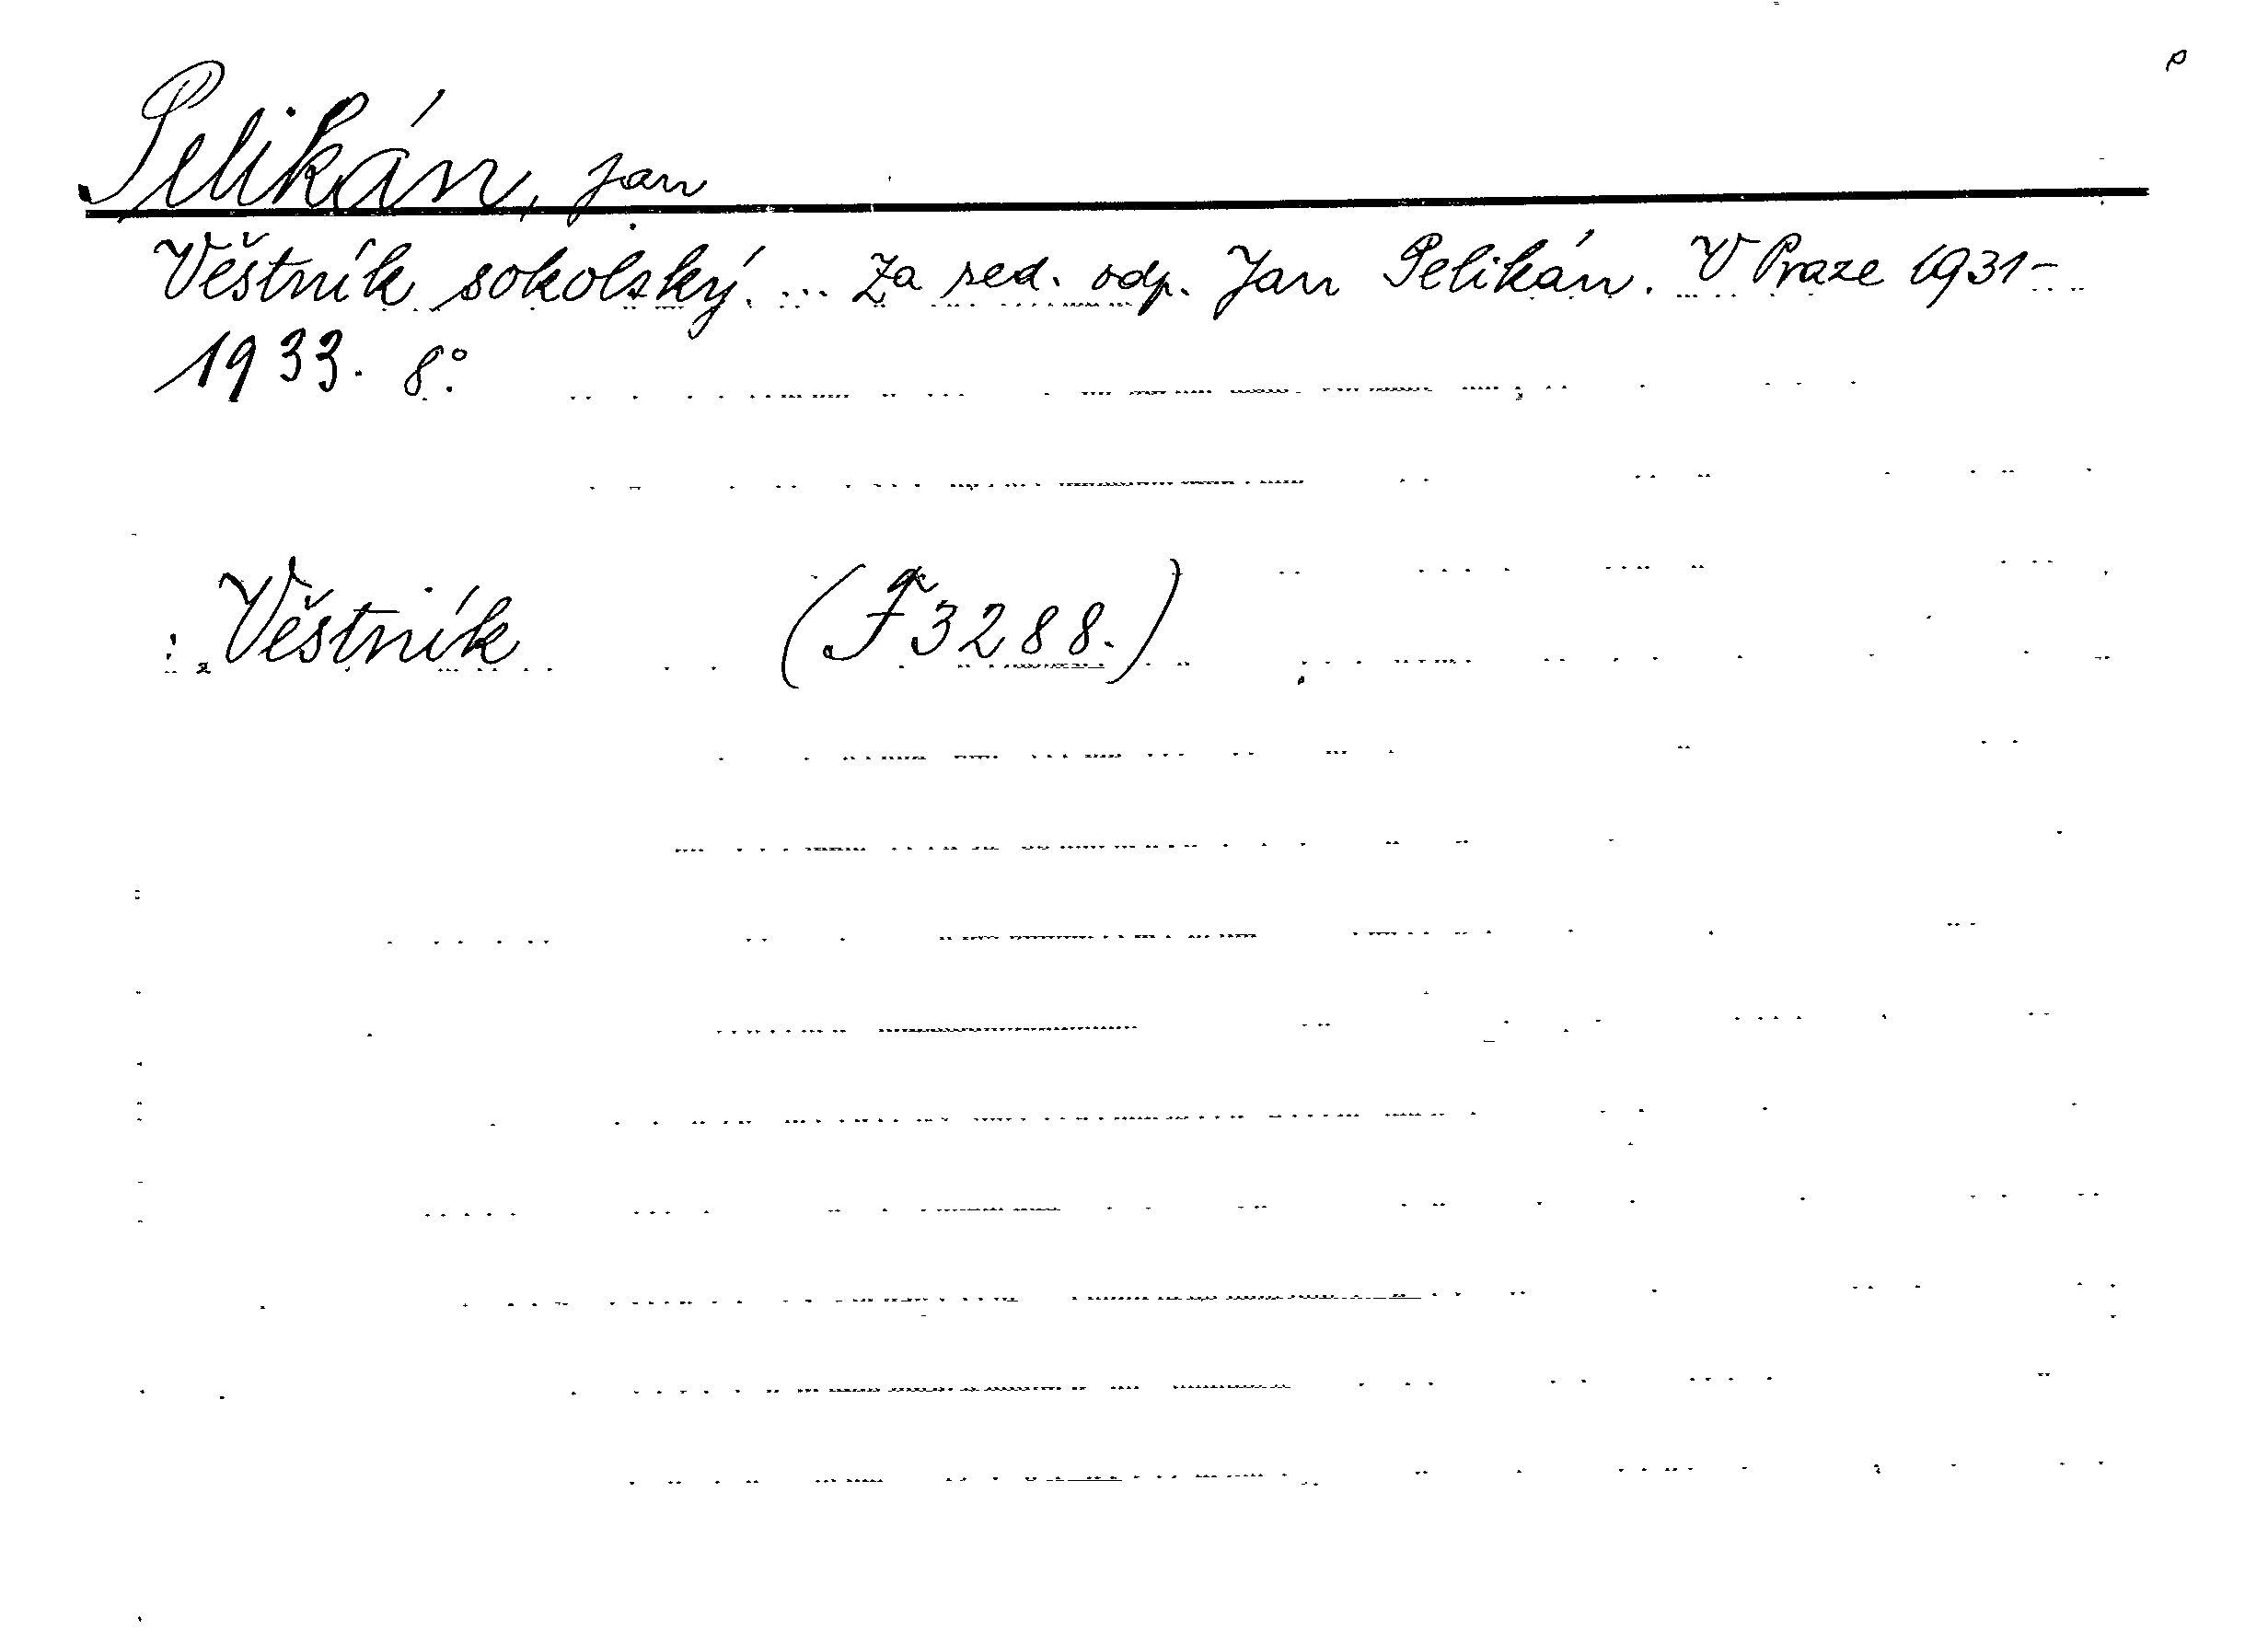 Pelikán, Jan
Věstník sokolský. ... Za red. odp. Jan Pelikán. V Praze 1931-
1933. 8°.
Věstník (F 3288.)